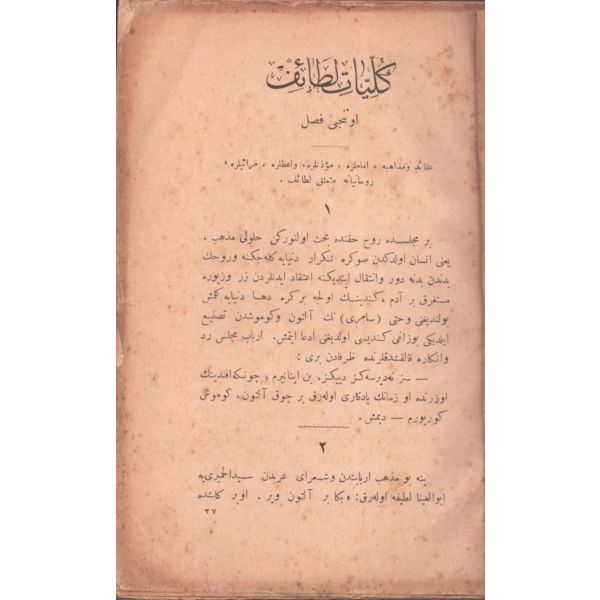 كلّيّات لطائف
اوننجی فصل
عقائد ومذاهبه ، اماملره ، مؤذنلره ، واعظلره ، مرائیلره ،
روحانیانه متعلق لطائف .
١
بر مجلسده روح حقنده بحث اولنورکن حلولی مذهب ،
یعنی انسان اولدکدن صوکره تکرار دنیایه کله جکنه وروحك
بدندن بدنه دور وانتقال ایتدیکنه اعتقاد ایدنلردن زر وزیوره
مستغرق بر آدم ، کندینك اولجه برکره دها دنیایه کلمش
بولندیغنی وحتی (سامری) نك آلتون وکوموشدن تصنیع
ایلدیکی بوزاغی کندیسی اولدیغنی ادعا ایتمش . ارباب مجلس رد
وانکاره قالقشدقلرنده ظرفادن بری :
— سز نه دیرسه‌کز دییکز ، بن اینانیرم ، چونکه افندینك
اوزرنده او زمانك یادکاری اوله‌رق بر چوق آلتون ، کوموش
کوریورم — دیمش .
٢
ینه بو مذهب اربابندن وشعرای عربدن سیدالحمیری‌یه
ابوالعینا لطیفه اوله‌رق : «بکا بر آلتون ویر . اوبر کلشده
٢٧